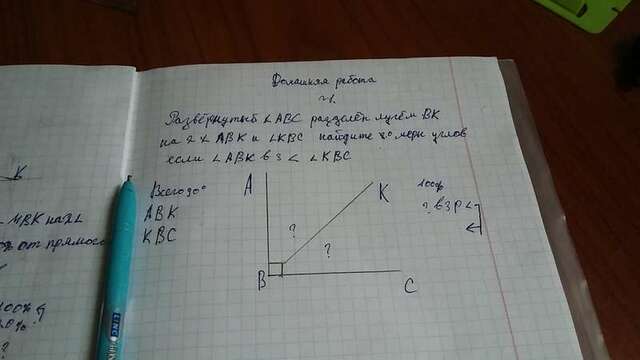 Домашняя работа
Развёрнутый ∠ABC разделён лучём BK
на 2 ∠ ABK и ∠KBC найдите
если ∠ABK в 3 < ∠KBC
Всего 90°
ABK
KBC
A
K
?
?
B
C
100%
? в 3 р <
K
MBK на 2∠
от прямого
100%
?
LINC